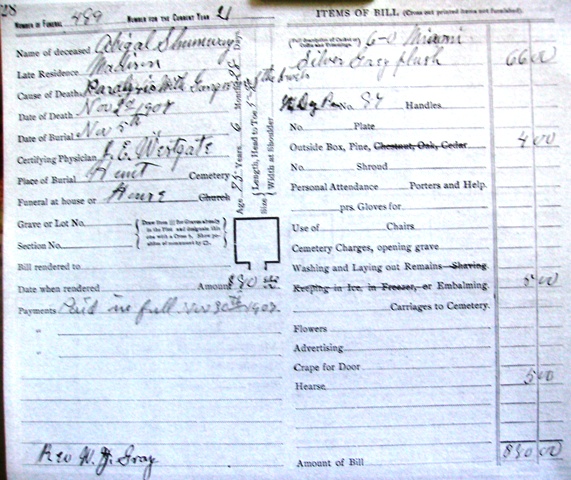 28
NUMBER OF FUNERAL 489 NUMBER FOR THE CURRENT YEAR 21
Name of deceased Abigal Shumway
Late Residence Madison
Cause of Death Paralysis With of the
Date of Death Nov 2nd 1907
Date of Burial Nov 5th
Certifying Physician E. Westgate
Place of Burial Hunt Cemetery
Funeral at house or House Church
Grave or Lot No.
Section No.
Bill rendered to
Date when rendered Amount $80 00
Payments Paid in full Nov 30th 1907
"
"
Rev W. J. Gray
Age Years 6 Months Days
Size { Length, Head to Toe
Width at Shoulder
ITEMS OF BILL (Cross out printed items not furnished).
(Full description of Casket or Coffin and Trimmings.) 6-0 Miami
Silver Gray plush 66 00
No. 84 Handles
No. Plate
Outside Box, Pine, Chestnut, Oak, Cedar 4 00
No. Shroud
Personal Attendance Porters and Help.
prs. Gloves for
Use of Chairs
Cemetery Charges, opening grave
Washing and Laying out Remains Shaving
Keeping in Ice, in Freezer, or Embalming. 5 00
Carriages to Cemetery.
Flowers
Advertising
Crape for Door
Hearse 5 00
Amount of Bill 80 00